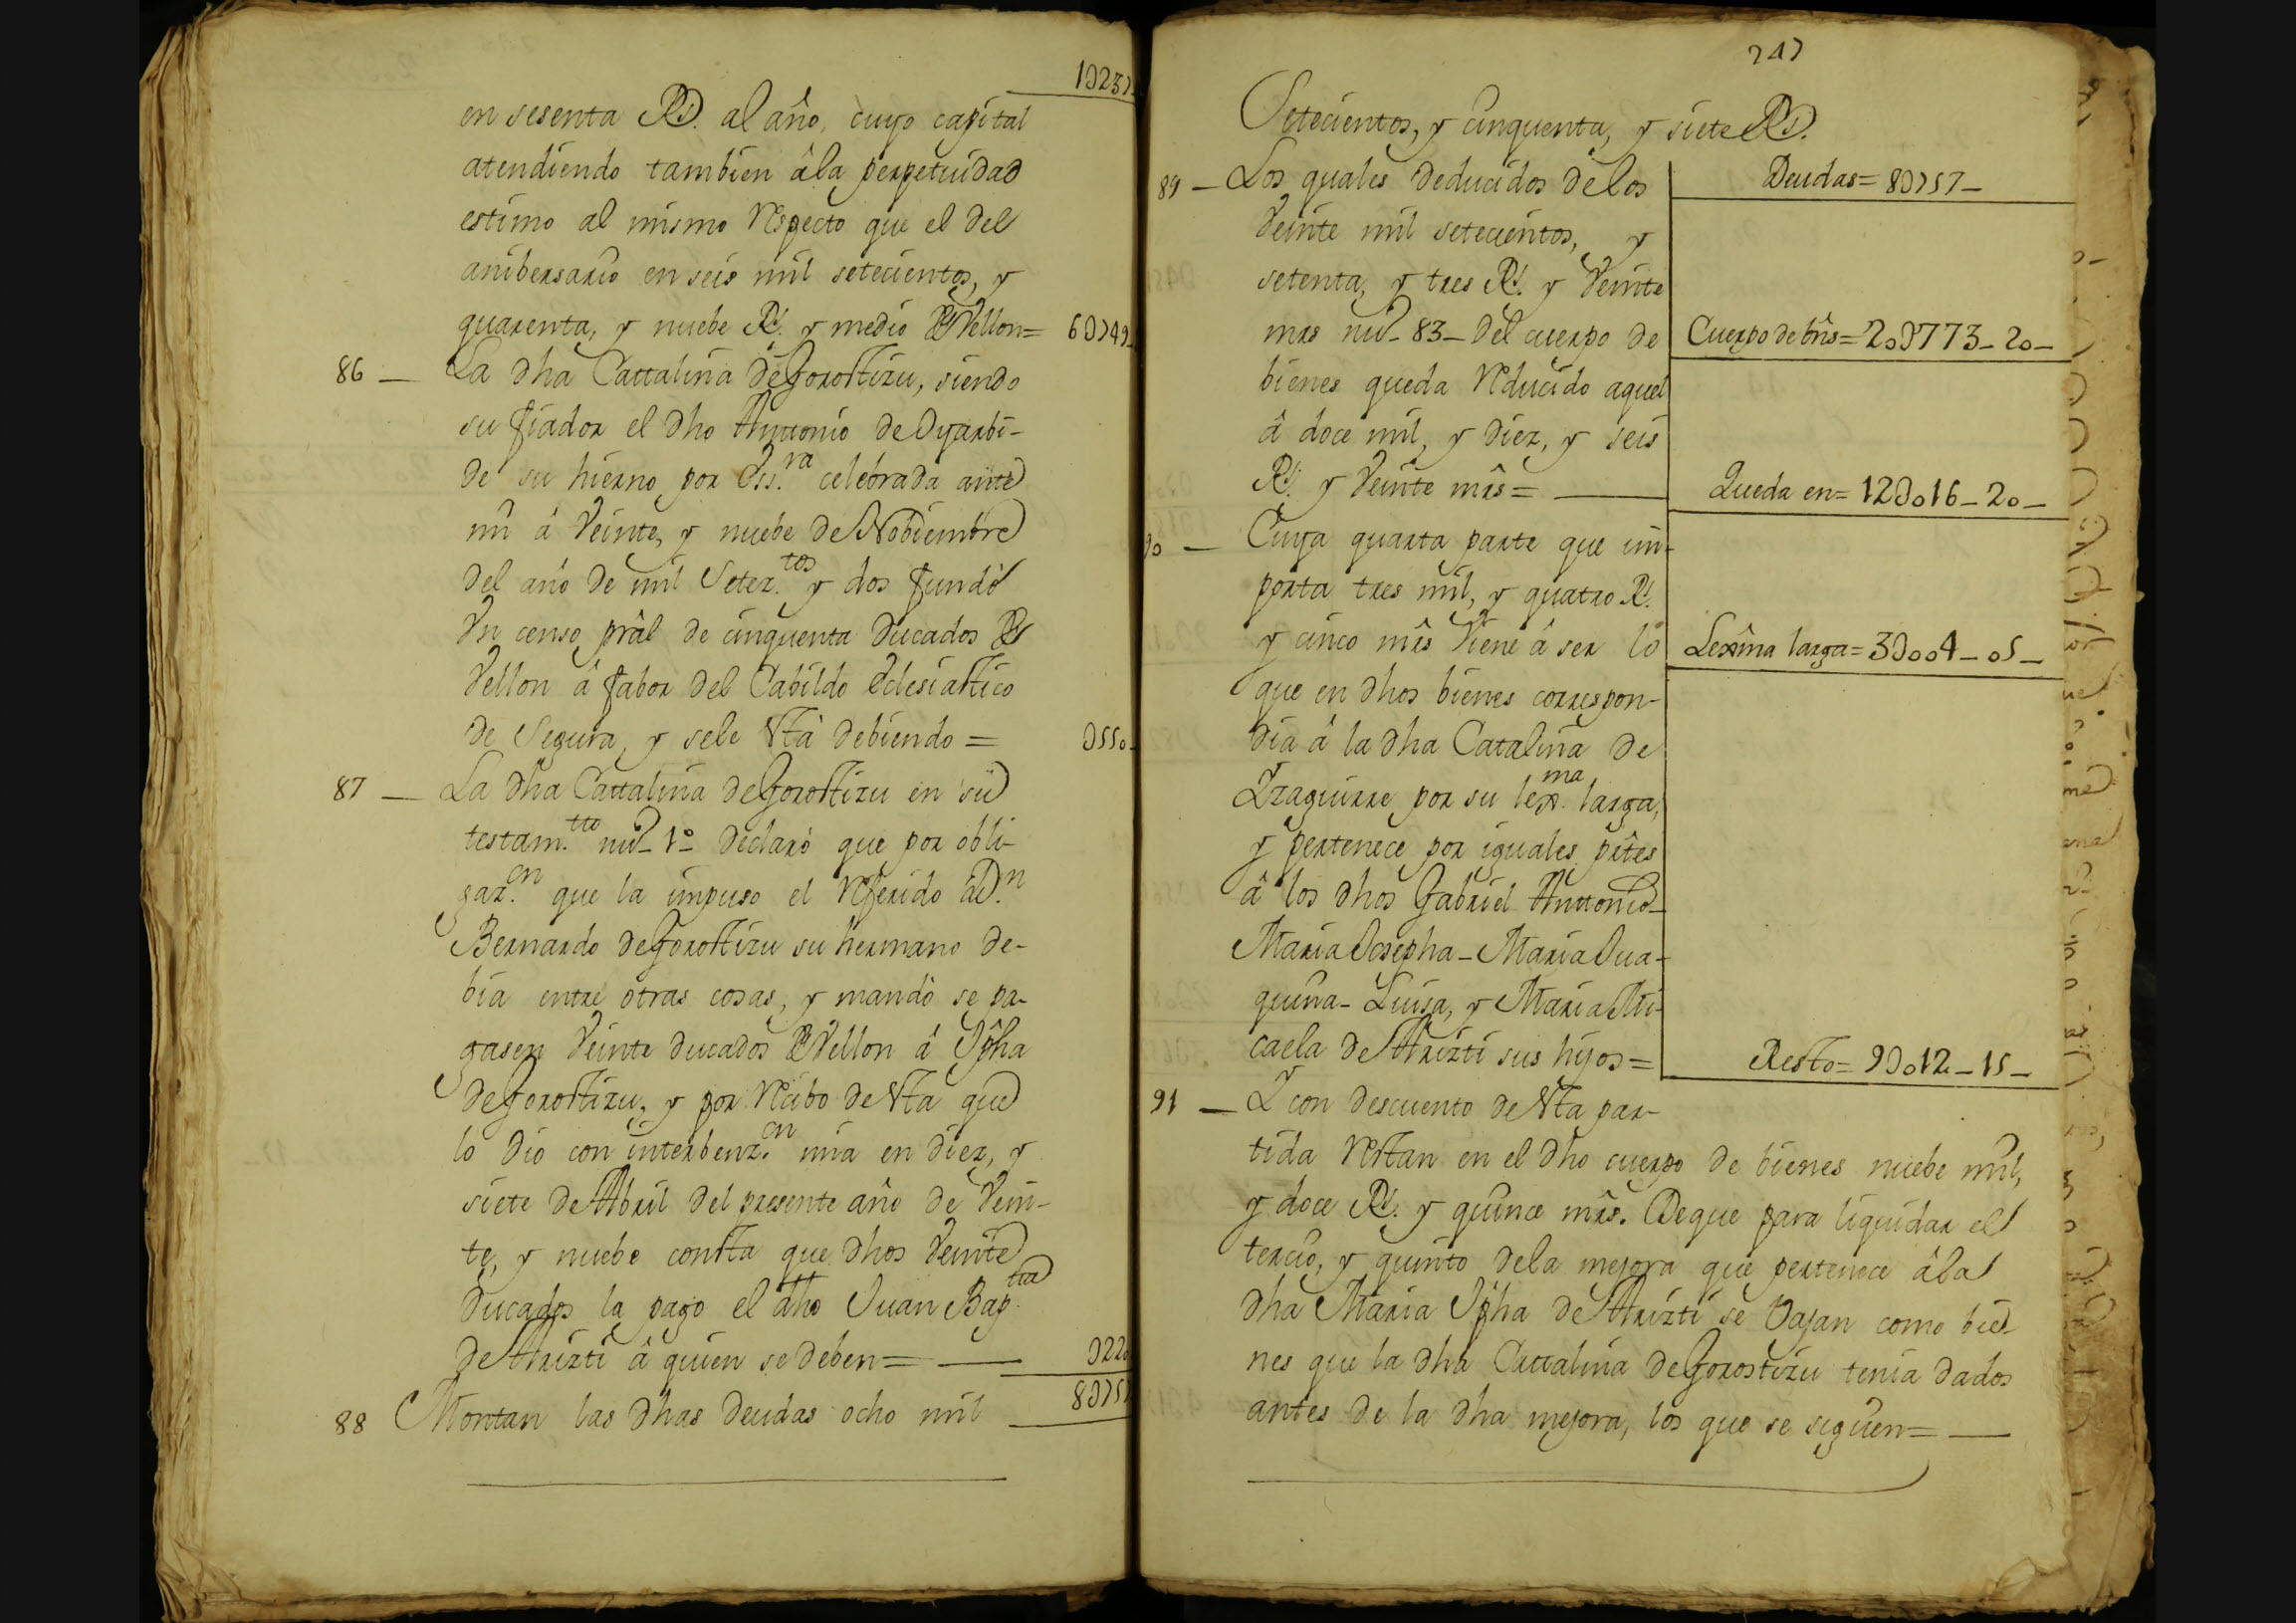 1D237
en sesenta Rs. al año, cuyo capital
atendiendo tambien â la perpetuidad
estimo al mismo respecto que el del
anibersario en seis mil setecientos, y
quarenta, y nuebe Rs. y medio de Vellon= 6D749_
86 — La dha Cattalina de Gorostizu, siendo
su fiador el dho Anttonio de Oyarbi-
de su hierno por Ess.ra celebrada ante
mi â Veinte, y nuebe de Nobiembre
del año de mil Setez.tos y dos fundó
Vn censo prâl de cinquenta Ducados de
Vellon â fabor del Cabildo Eclesiastico
de Segura, y sele está debiendo = D550_
87 — La dha Cattalina de Gorostizu en su
testam.tto nu_ 1º declaró que por obli-
gaz.on que la impuso el referido D.n
Bernardo de Gorostizu su hermano de-
bia entre otras cosas, y mandò se pa-
gasen Veinte ducados de Vellon â Jpha
de Gorostizu, y por recibo de esta que
lo dio con interbenz.on mia en diez, y
siete de Abril del presente año de Vein-
te, y nuebe consta que dhos Veinte
ducados la pago el dho Juan Bap.tta
de Arizti â quien se deben= — D220
88 Montan las dhas deudas ocho mil 8D757
247
Setecientos, y cinquenta, y siete Rs.
89 — Los quales deducidos de los
Veinte mil setecientos, y
setenta, y tres Rs. y Veinte
mrs nu_ 83_ del cuerpo de
bienes queda reducido aquel
â doce mil, y diez, y seis
Rs. y Veinte mrs= —
Deudas= 8D757_
Cuerpo de bns= 20D773_20_
Queda en= 12D016_20_
90 — Cuya quarta parte que im-
porta tres mil, y quatro Rs.
y cinco mrs Viene â ser lo
que en dhos bienes correspon-
dia â la dha Catalina de
Yzaguirre por su lex.ma larga,
y pertenece por iguales pîtes
â los dhos Gabriel Anttonio_
Maria Josepha_ Maria Jua-
quina_ Luisa, y Maria Mi-
caela de Arizti sus hijos=
Lexma larga= 3D004_05_
Resto= 9D012_15_
91 — Y con descuento de esta par-
tida restan en el dho cuerpo de bienes nuebe mil,
y doce Rs. y quince mrs. De que para liquidar el
tercio, y quinto dela mejora que pertenece âla
dha Maria Jpha de Arizti se bajan como bie-
nes que la dha Cattalina de Gorostizu tenia dados
antes de la dha mejora, los que se siguen= —